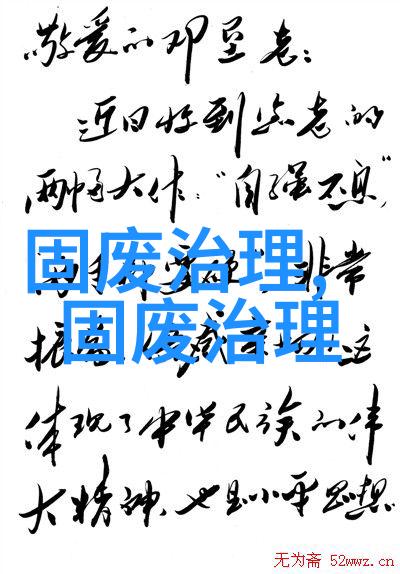 敬爱的邓垦老：
近日收到您老的
两幅大作："自强不息"
固废治理,
非常
固废治理
振 这
体现了中华民族的伟
大精神,也是小平思想
无为斋 52wwz.cn